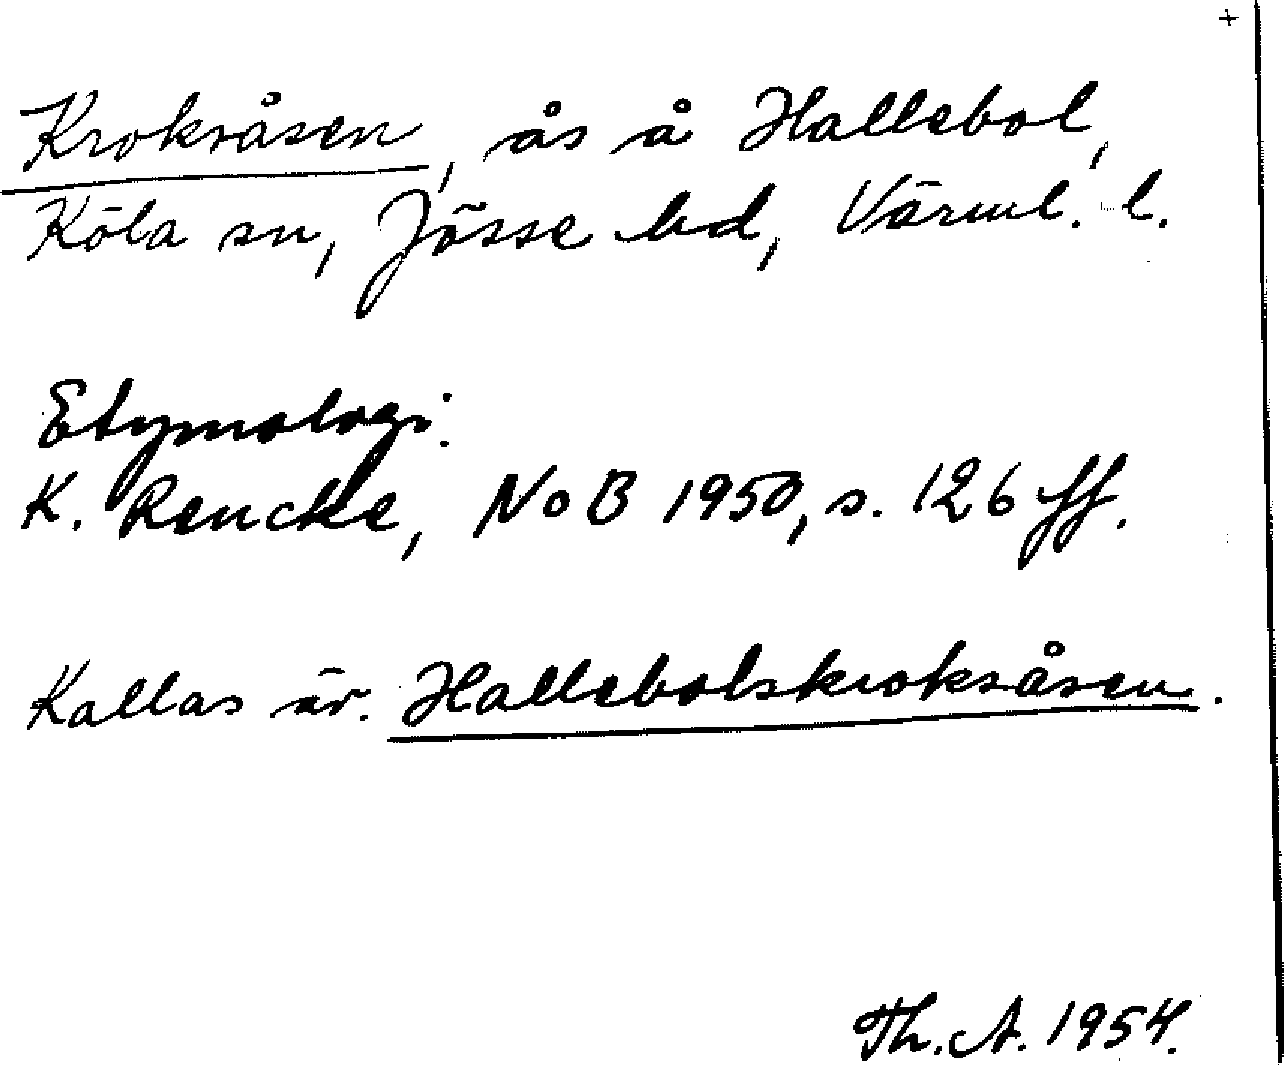 +
Kroksåsen, ås å Hallebol,
Köla sn, Jösse hd, Värml. l.
Etymologi.
K. Rencke, NoB 1950, s. 126 ff.
Kallas äv. Hallebolskroksåsen.
Th. A. 1954.